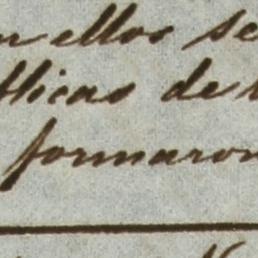 ellos se
blicas de
formaron